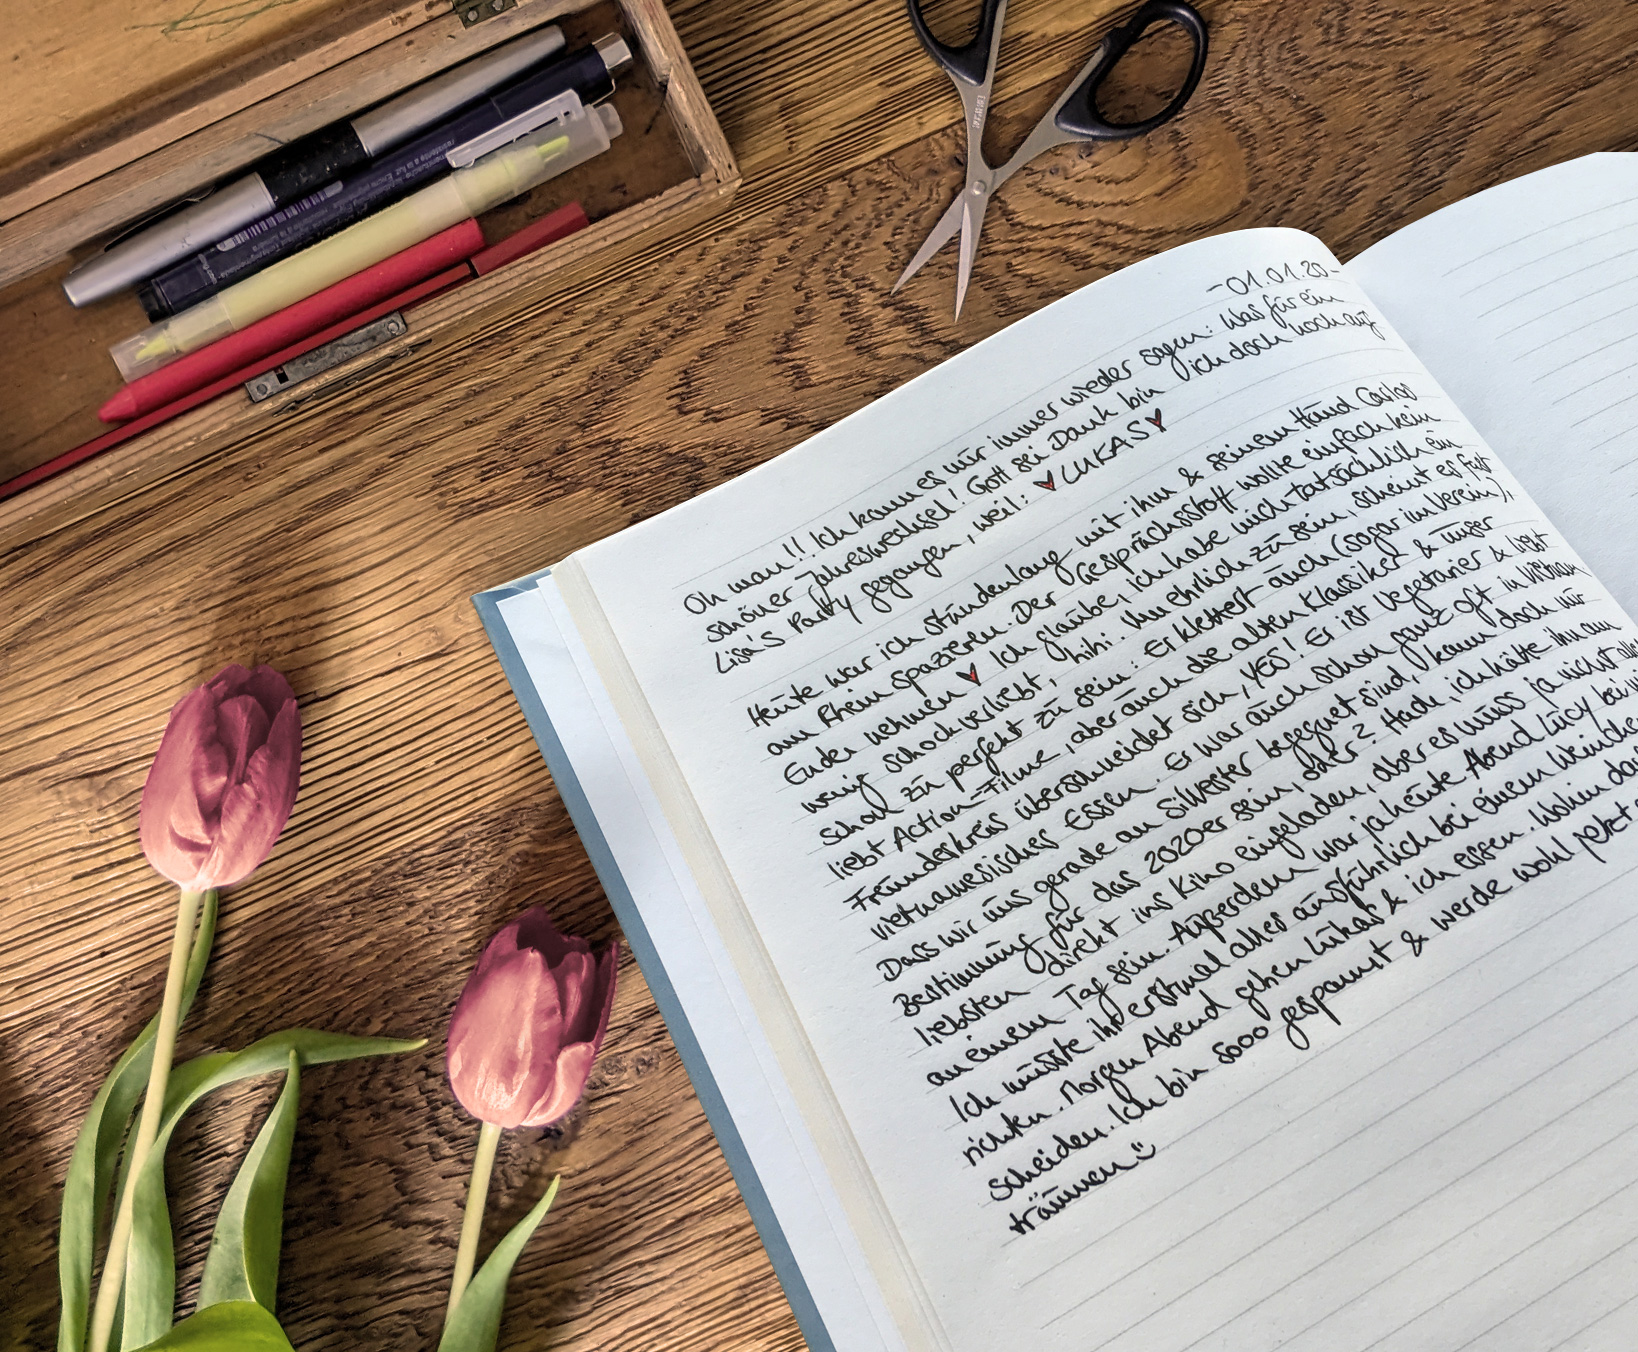 -01.01.20-
Oh man!! Ich kann es nur immer wieder sagen: Was für ein
schöner Jahreswechsel! Gott sei Dank bin ich doch noch auf
Lisa's Party gegangen, weil: ♥LUKAS♥
Heute war ich stundenlang mit ihm & seinem Hund Carlos
am Rhein spazieren. Der Gesprächsstoff wollte einfach kein
Ende nehmen ♥ Ich glaube, ich habe mich tatsächlich ein
wenig schockverliebt, hihi. Um ehrlich zu sein, scheint es fast
schon zu perfekt zu sein: Er klettert auch (sogar im Verein),
liebt Action-Filme, aber auch die alten Klassiker & unser
Freundeskreis überschneidet sich, YES! Er ist Vegetarier & liebt
vietnamesisches Essen. Er war auch schon ganz oft in Vietnam.
Dass wir uns gerade an Silvester begegnet sind, kann doch nur
Bestimmung für das 2020er sein, oder? Hach, ich hätte ihn am
liebsten direkt ins Kino eingeladen, aber es muss ja nicht alles
an einem Tag sein. Außerdem war ja heute Abend Lucy bei mir
Ich musste ihr erstmal alles ausführlich bei einem Weinchen
richten. Morgen Abend gehen Lukas & ich essen. Wohin darf
scheiden. Ich bin sooo gespannt & werde wohl
träumen